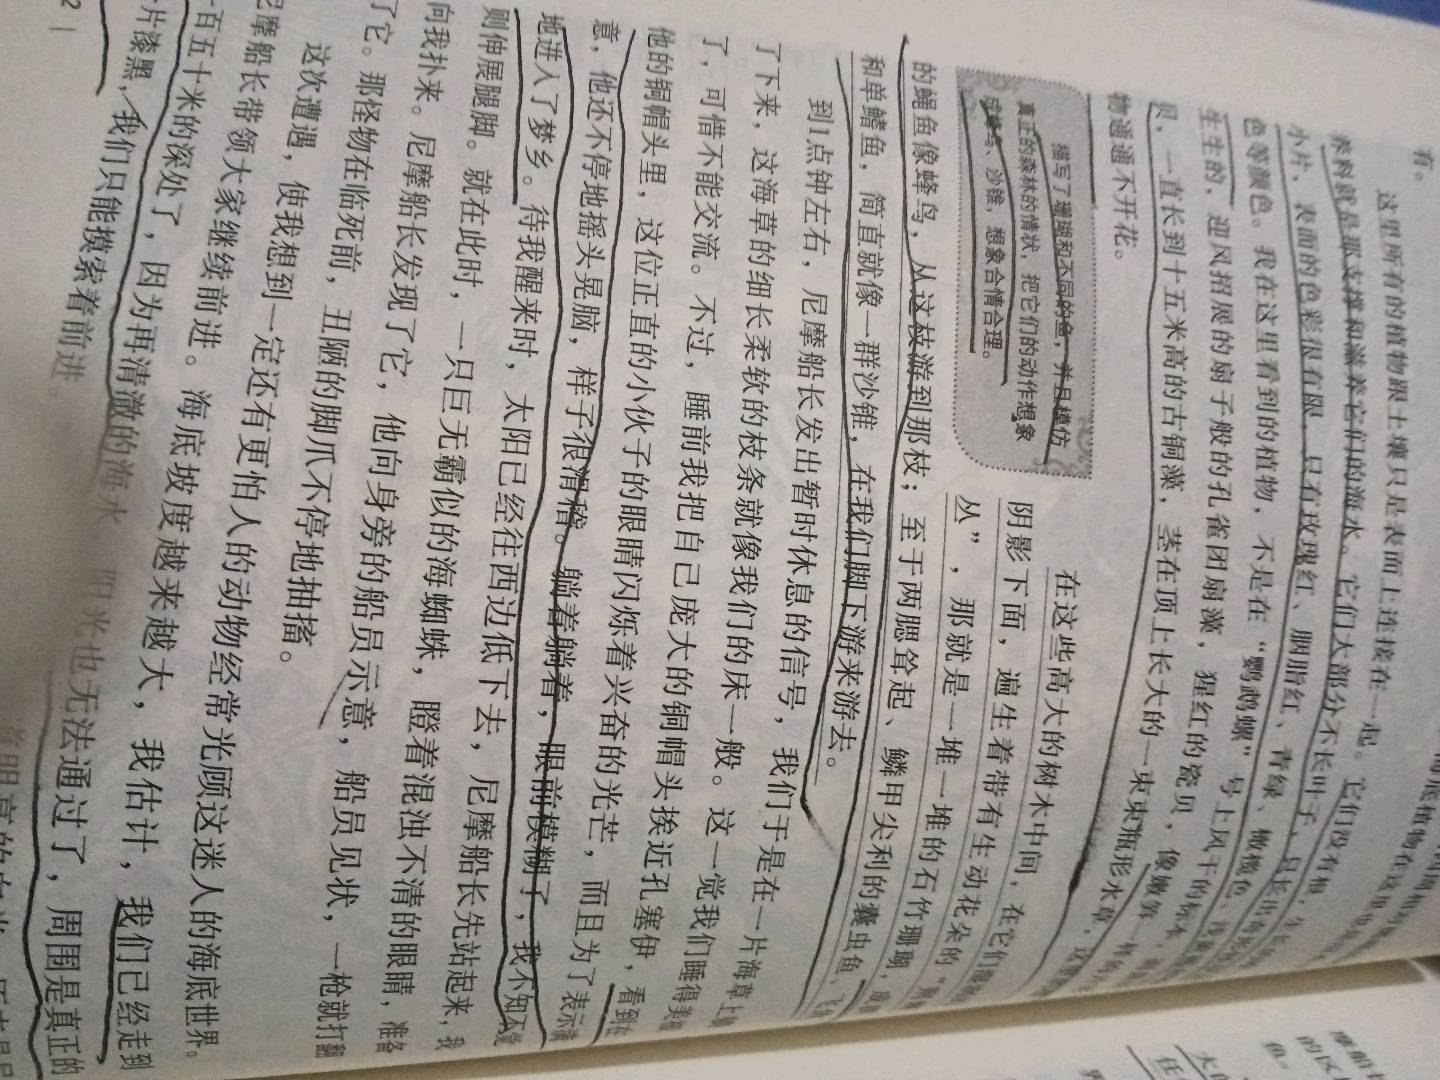 有。
这里所有的植物跟土壤只是表面上连接在一起。它们没有根，
养料就是那支撑和滋养它们的海水。它们大部分不长叶子，只长出
小片，表面的色彩很有限，只有玫瑰红、胭脂红、青绿、橄榄色、
色等颜色。我在这里看到的植物，不是在“鹦鹉螺”号上风干的标本，
生生的，迎风招展的扇子般的孔雀团扇藻，猩红的瓷贝，像
贝，一直长到十五米高的古铜藻，茎在顶上长大的一束束瓶形水草，
物通通不开花。
描写了珊瑚和不同的鱼，并且模仿
真正的森林的情状，把它们的动作想象
成蜂鸟、沙锥，想象合情合理。
在这些高大的树木中间，在它们
阴影下面，遍生着带有生动花朵的
丛”，那就是一堆一堆的石竹珊瑚，
的蝇鱼像蜂鸟，从这枝游到那枝；至于两腮耸起、鳞甲尖利的囊虫鱼、
和单鳍鱼，简直就像一群沙锥，在我们脚下游来游去。
到1点钟左右，尼摩船长发出暂时休息的信号，我们于是在一片海草上
了下来，这海草的细长柔软的枝条就像我们的床一般。这一觉我们睡得美
了，可惜不能交流。不过，睡前我把自己庞大的铜帽头挨近孔塞伊，看到在
他的铜帽头里，这位正直的小伙子的眼睛闪烁着兴奋的光芒，而且为了表示
意，他还不停地摇头晃脑，样子很滑稽。躺着躺着，眼前模糊了，我不知不觉
地进入了梦乡。待我醒来时，太阳已经往西边低下去，尼摩船长先站起来，我
则伸展腿脚。就在此时，一只巨无霸似的海蜘蛛，瞪着混浊不清的眼睛，准备
向我扑来。尼摩船长发现了它，他向身旁的船员示意，船员见状，一枪就打翻
了它。那怪物在临死前，丑陋的脚爪不停地抽搐。
这次遭遇，使我想到一定还有更怕人的动物经常光顾这迷人的海底世界。
尼摩船长带领大家继续前进。海底坡度越来越大，我估计，我们已经走到
一百五十米的深处了，因为再清澈的海水 阳光也无法通过了，周围是真正的
一片漆黑，我们只能摸索着前进
2 |